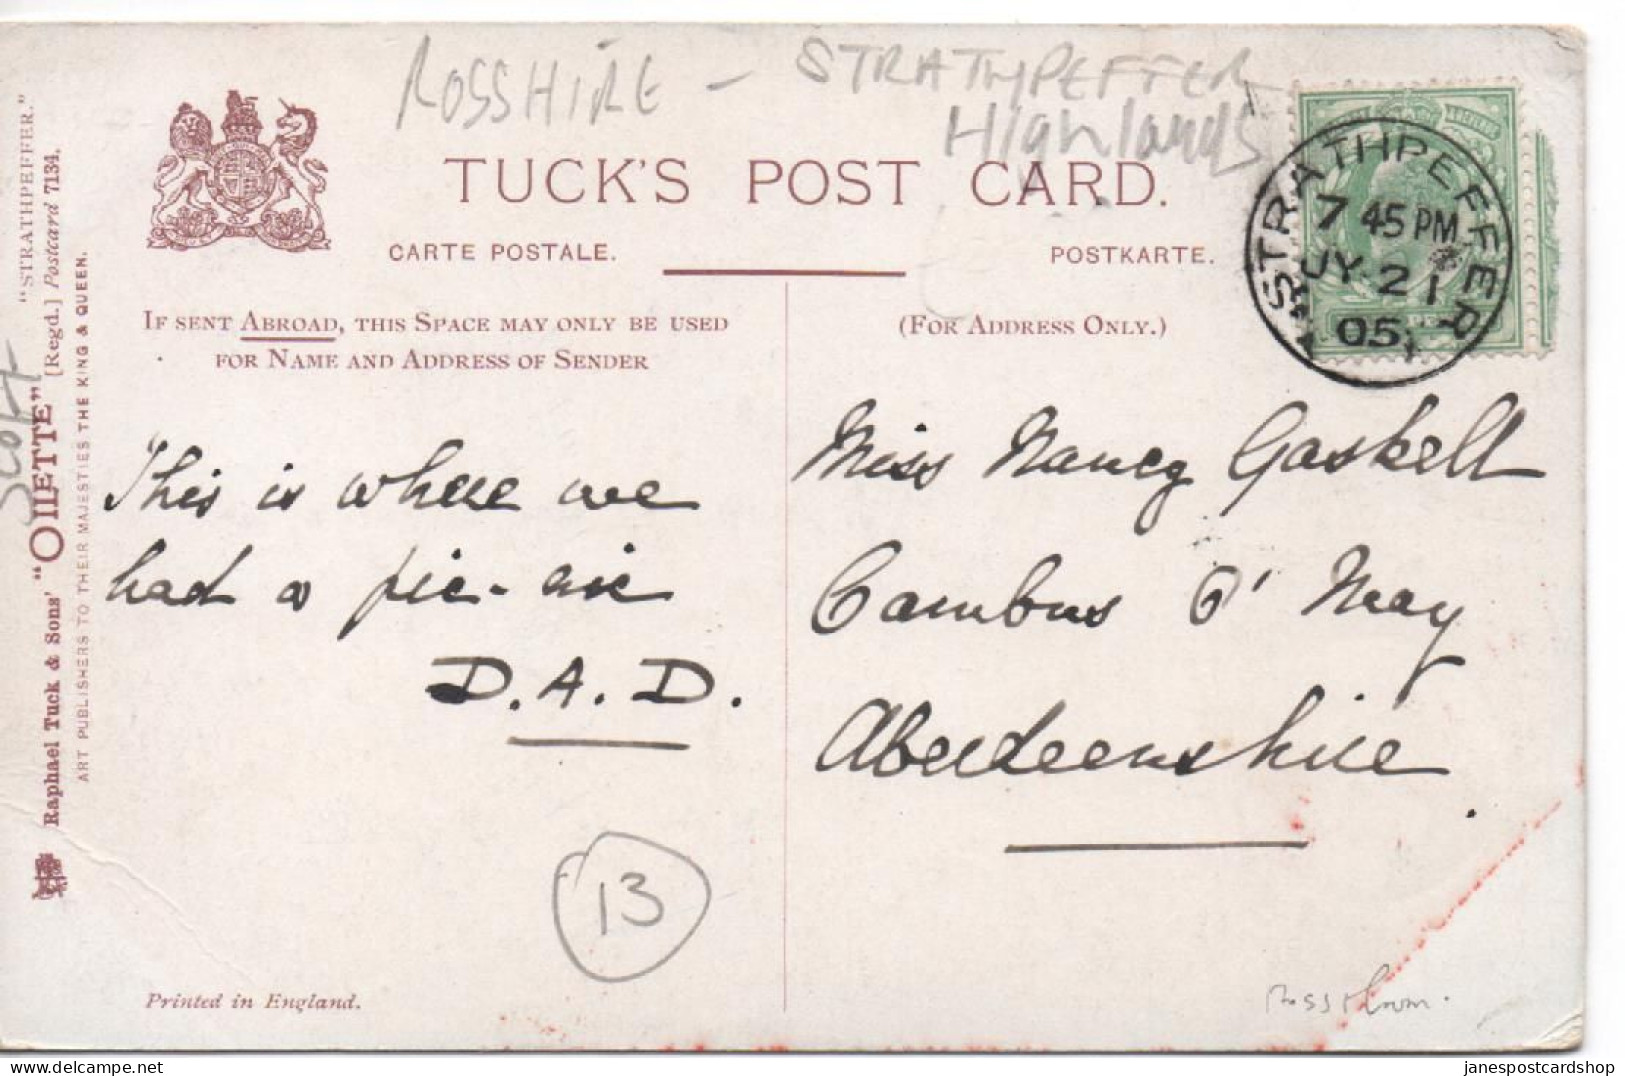 ROSSHIRE - STRATHPEFFER
Highlands
TUCK'S POST CARD.
CARTE POSTALE.
POSTKARTE.
STRATHPEFFER
7 45 PM
JY 21
05
IF SENT ABROAD, THIS SPACE MAY ONLY BE USED
FOR NAME AND ADDRESS OF SENDER
(FOR ADDRESS ONLY.)
This is where we
had a pic-nic
D.A.D.
Miss Nancy Gaskell
Cambus O' May
Aberdeenshire.
13
Printed in England.
"STRATHPEFFER."
Raphael Tuck & Sons' "OILETTE" [Regd.] Postcard 7134.
ART PUBLISHERS TO THEIR MAJESTIES THE KING & QUEEN.
delcampe.net
janespostcardshop